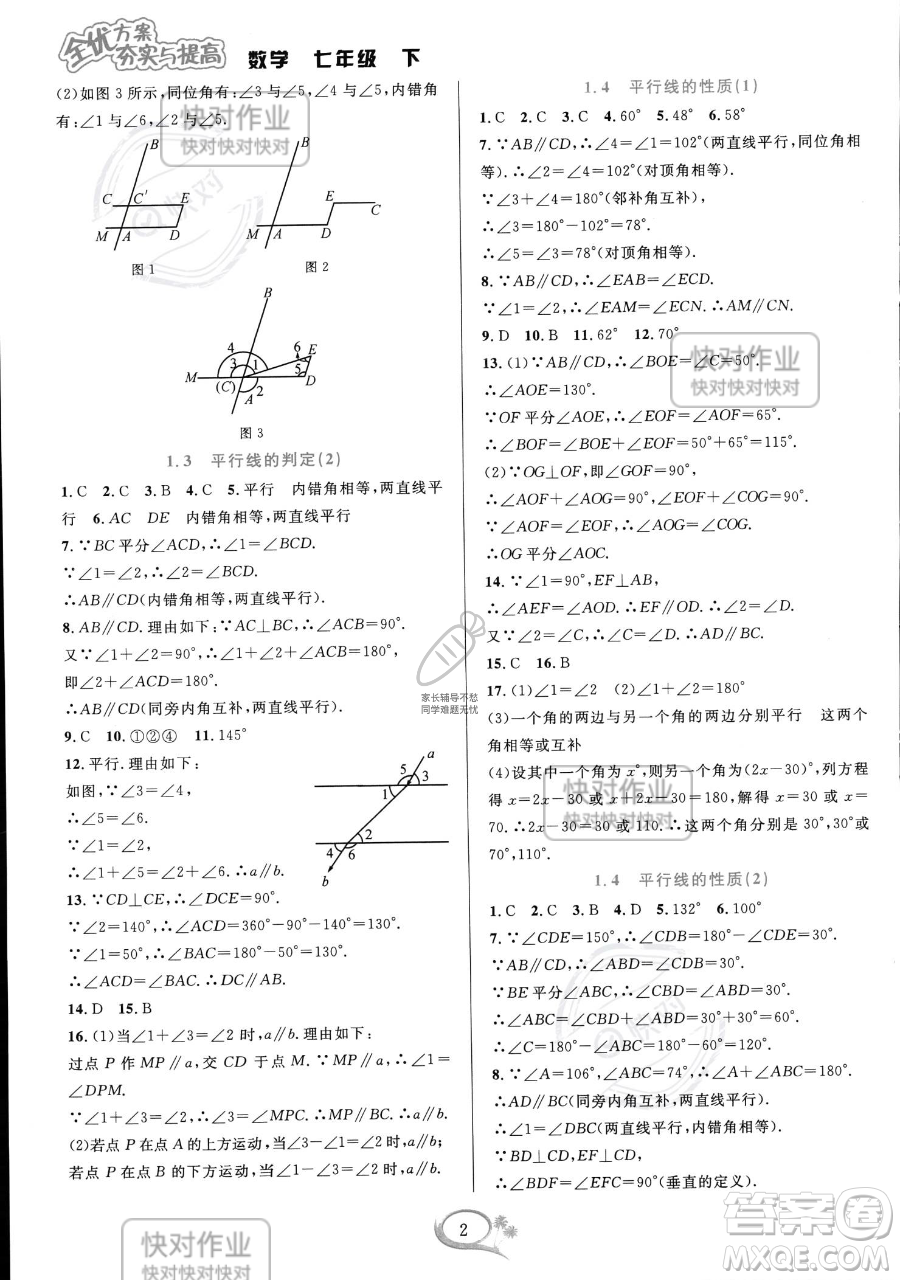 全优方案
夯实与提高
数学 七年级 下
(2)如图3所示,同位角有:∠3与∠5,∠4与∠5,内错角
有:∠1与∠6,∠2与∠5.
B
C C′ E
M A D
图1
B
E
C
M A D
图2
B
4 6 E
3 1 5
M (C) 2 D
A
图3
1.3 平行线的判定(2)
1. C 2. C 3. B 4. C 5. 平行 内错角相等,两直线平
行 6. AC DE 内错角相等,两直线平行
7. ∵BC平分∠ACD,∴∠1=∠BCD.
∵∠1=∠2,∴∠2=∠BCD.
∴AB∥CD(内错角相等,两直线平行).
8. AB∥CD.理由如下:∵AC⊥BC,∴∠ACB=90°.
又∵∠1+∠2=90°,∴∠1+∠2+∠ACB=180°,
即∠2+∠ACD=180°.
∴AB∥CD(同旁内角互补,两直线平行).
9. C 10. ①②④ 11. 145°
12. 平行.理由如下:
如图,∵∠3=∠4,
∴∠5=∠6.
∵∠1=∠2,
∴∠1+∠5=∠2+∠6.∴a∥b.
a
5 3
1
2
4 6
b
13. ∵CD⊥CE,∴∠DCE=90°.
∵∠2=140°,∴∠ACD=360°-90°-140°=130°.
∵∠1=50°,∴∠1+∠ACD=50°+130°=180°.
∴∠1+∠ACD=180°.∴DC∥AB.
14. D 15. B
16. (1)当∠1+∠3=∠2时,a∥b.理由如下:
过点P作MP∥a,交CD于点M.∵MP∥a,∴∠1=
∠DPM.
∵∠1+∠3=∠2,∴∠3=∠MPC.∴MP∥b.∴a∥b.
(2)若点P在点A的上方运动,当∠3-∠1=∠2时,a∥b;
若点P在点B的下方运动,当∠1-∠3=∠2时,a∥b.
1.4 平行线的性质(1)
1. C 2. C 3. C 4. 60° 5. 48° 6. 58°
7. ∵AB∥CD,∴∠4=∠1=102°(两直线平行,同位角相
等).∴∠2=∠4=102°(对顶角相等).
∵∠3+∠4=180°(邻补角互补).
∴∠3=180°-102°=78°.
∴∠5=∠3=78°(对顶角相等).
8. ∵AB∥CD,∴∠EAB=∠ECD.
∵∠1=∠2,∴∠EAM=∠ECN.∴AM∥CN.
9. D 10. B 11. 62° 12. 70°
13. (1)∵AB∥CD,∴∠BOE=∠C=50°.
∴∠AOE=130°.
∵OF平分∠AOE,∴∠EOF=∠AOF=65°.
∴∠BOF=∠BOE+∠EOF=50°+65°=115°.
(2)∵OG⊥OF,即∠GOF=90°.
∴∠AOF+∠AOG=90°,∠EOF+∠EOG=90°.
∵∠AOF=∠EOF,∴∠AOG=∠EOG.
∴OG平分∠AOC.
14. ∵∠1=90°,EF⊥AB,
∴∠AEF=∠AOD.∴EF∥OD.∴∠2=∠D.
又∵∠2=∠C,∴∠C=∠D.∴AD∥BC.
15. C 16. B
17. (1)∠1=∠2 (2)∠1+∠2=180°
(3)一个角的两边与另一个角的两边分别平行 这两个
角相等或互补
(4)设其中一个角为x°,则另一个角为(2x-30)°,列方程
得x=2x-30或x+2x-30=180,解得x=30或x=
70.∴2x-30=30或110.∴这两个角分别是30°,30°或
70°,110°.
1.4 平行线的性质(2)
1. C 2. C 3. B 4. D 5. 132° 6. 100°
7. ∵∠CDE=150°,∴∠CDB=180°-∠CDE=30°.
∵AB∥CD,∴∠ABD=∠CDB=30°.
∵BE平分∠ABC,∴∠CBD=∠ABD=30°.
∴∠ABC=∠CBD+∠ABD=60°.
∵AB∥CD,∴∠C+∠ABC=180°.
∴∠C=180°-∠ABC=120°.
8. ∵∠A=106°,∠ABC=74°,∴∠A+∠ABC=180°.
∴AD∥BC(同旁内角互补,两直线平行).
∴∠1=∠DBC(两直线平行,内错角相等).
∵BD⊥CD,EF⊥CD,
∴∠BDF=∠EFC=90°(垂直的定义).
2
快对作业
快对快对快对
快对作业
快对快对快对
快对作业
快对快对快对
快对作业
快对快对快对
快对
快对
家长辅导不愁
同学难题无忧
答案卷
MXQE.COM